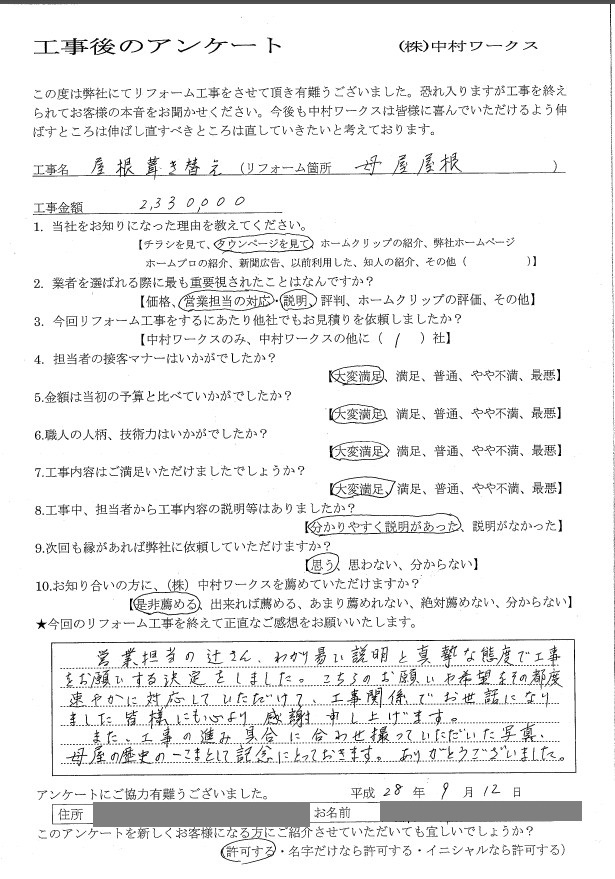 工事後のアンケート (株)中村ワークス
この度は弊社にてリフォーム工事をさせて頂き有難うございました。恐れ入りますが工事を終え
られてお客様の本音をお聞かせください。今後も中村ワークスは皆様に喜んでいただけるよう伸
ばすところは伸ばし直すべきところは直していきたいと考えております。
工事名 屋根葺き替え (リフォーム箇所 母屋屋根 )
工事金額 2,330,000
1. 当社をお知りになった理由を教えてください。
【チラシを見て、タウンページを見て、ホームクリップの紹介、弊社ホームページ
ホームプロの紹介、新聞広告、以前利用した、知人の紹介、その他( )】
2. 業者を選ばれる際に最も重要視されたことはなんですか?
【価格、営業担当の対応・説明、評判、ホームクリップの評価、その他】
3. 今回リフォーム工事をするにあたり他社でもお見積りを依頼しましたか?
【中村ワークスのみ、中村ワークスの他に( 1 )社】
4. 担当者の接客マナーはいかがでしたか?
【大変満足、満足、普通、やや不満、最悪】
5.金額は当初の予算と比べていかがでしたか?
【大変満足、満足、普通、やや不満、最悪】
6.職人の人柄、技術力はいかがでしたか?
【大変満足、満足、普通、やや不満、最悪】
7.工事内容はご満足いただけましたでしょうか?
【大変満足、満足、普通、やや不満、最悪】
8.工事中、担当者から工事内容の説明等はありましたか?
【分かりやすく説明があった、説明がなかった】
9.次回も縁があれば弊社に依頼していただけますか?
【思う、思わない、分からない】
10.お知り合いの方に、(株) 中村ワークスを薦めていただけますか?
【是非薦める、出来れば薦める、あまり薦めれない、絶対薦めない、分からない】
★今回のリフォーム工事を終えて正直なご感想をお願いいたします。
営業担当の辻さん、わかり易い説明と真摯な態度で工事
をお願いする決定をしました。こちらのお願いや希望をその都度
速やかに対応していただけて、工事関係でお世話になり
ました皆様にも心より感謝申し上げます。
また、工事の進み具合に合わせ撮っていただいた写真、
母屋の歴史の一こまとして記念にとっておきます。ありがとうございました。
アンケートにご協力有難うございました。 平成 28 年 9 月 12 日
住所 お名前
このアンケートを新しくお客様になる方にご紹介させていただいても宜しいでしょうか?
(許可する・名字だけなら許可する・イニシャルなら許可する)